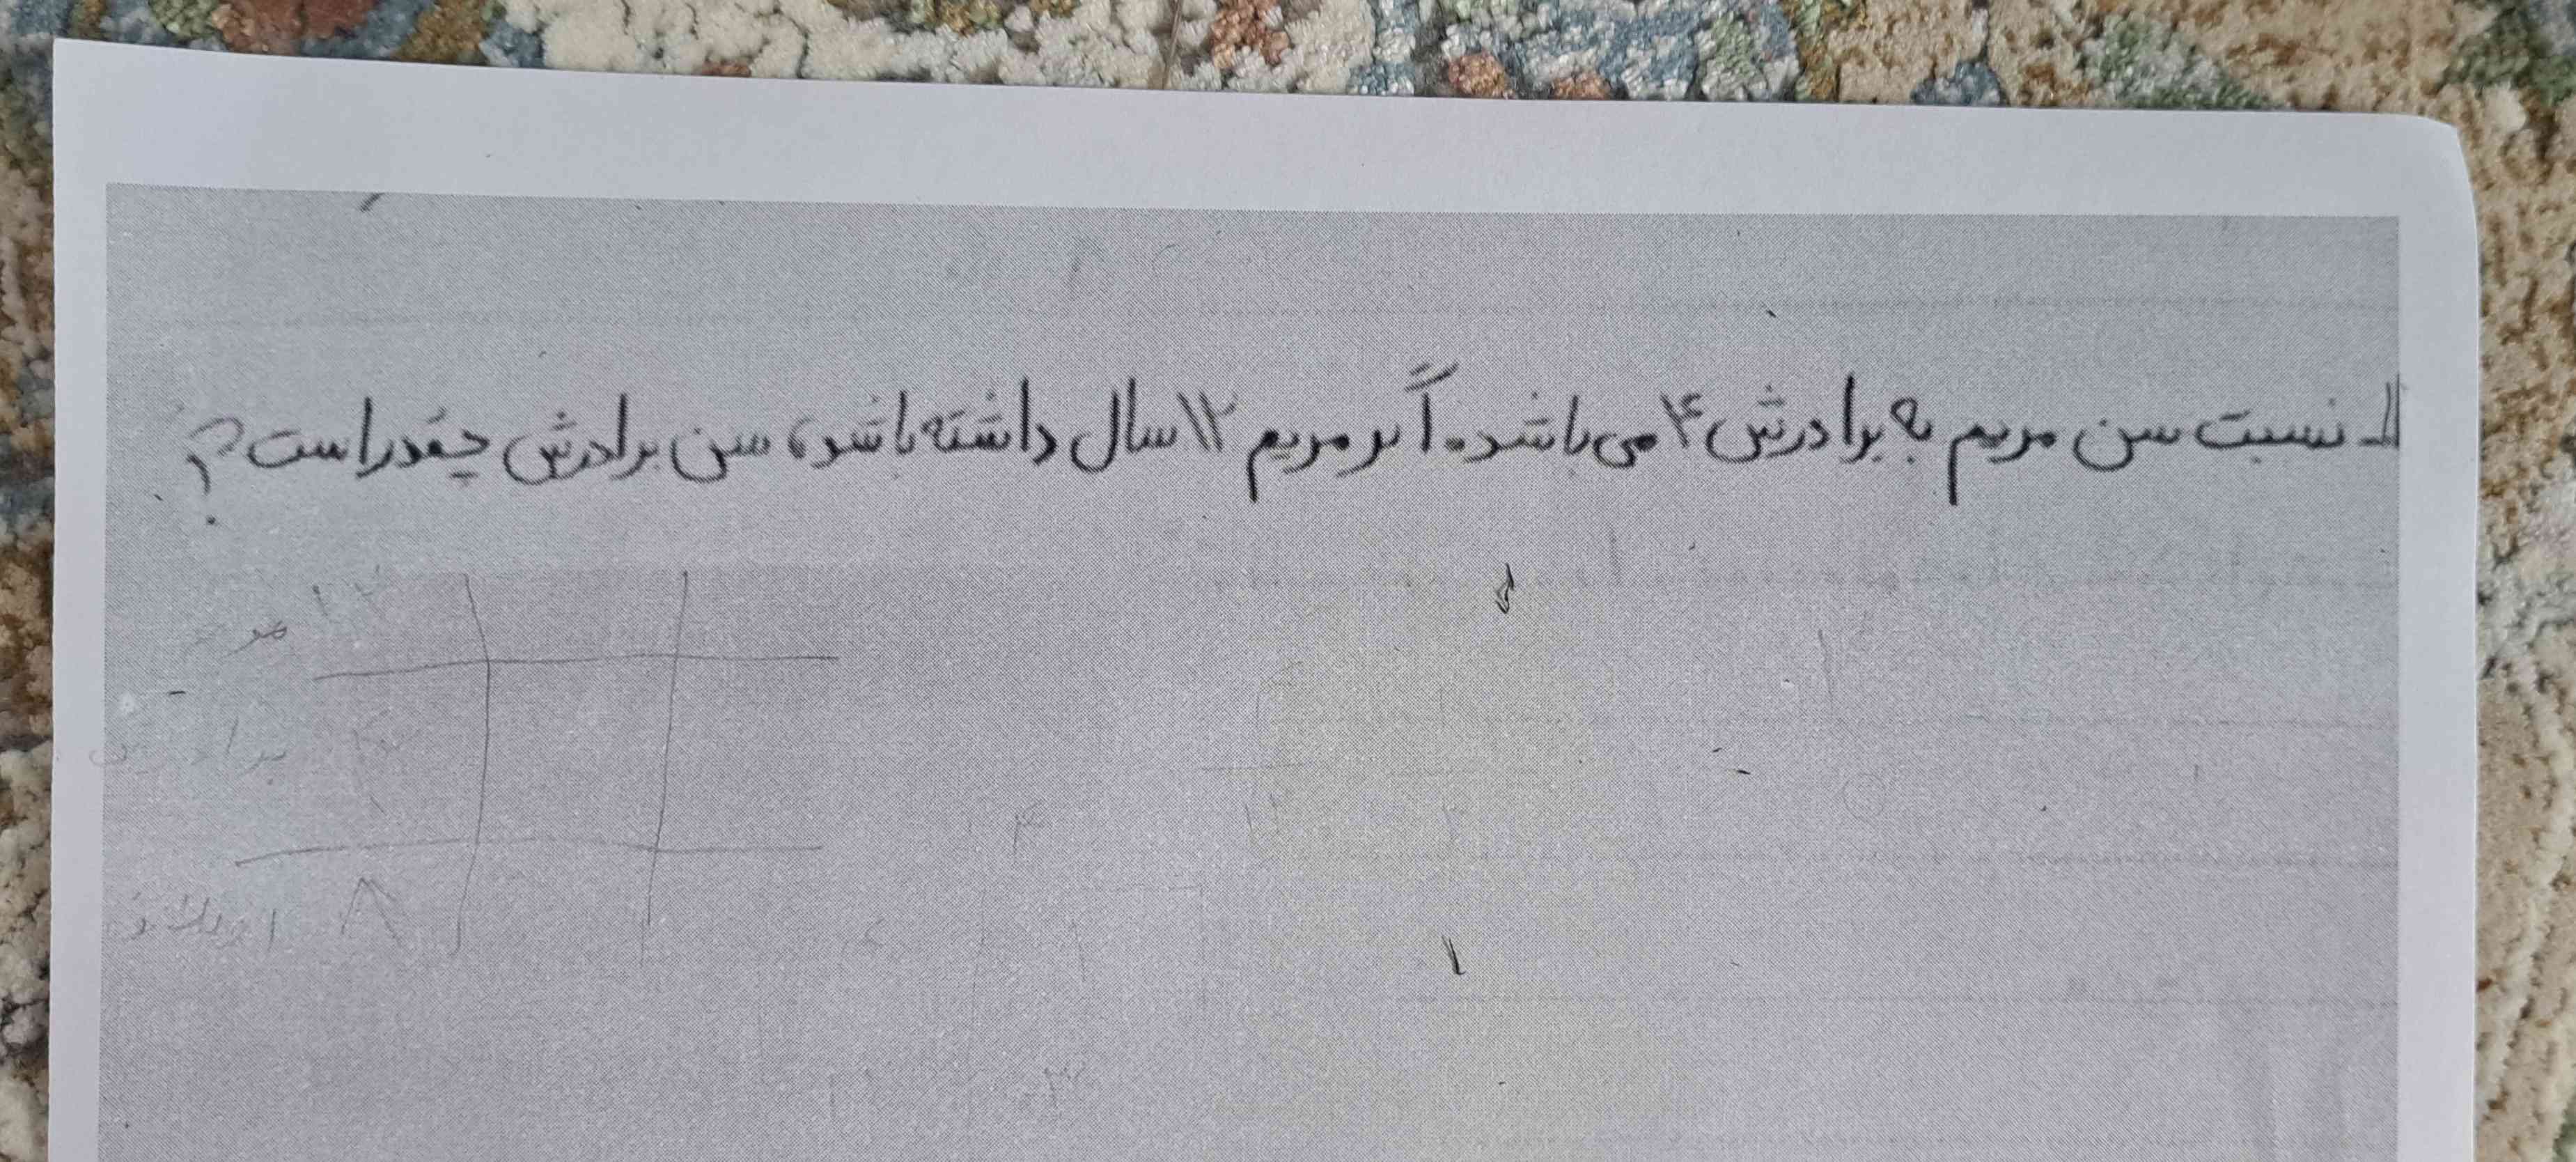 ۱۱ـ نسبت سن مریم به برادرش ۴ می‌باشد. اگر مریم ۱۲ سال داشته باشد، سن برادرش چقدر است؟
۱۲
مر
برادرش
۸
اختلاف
۴
۳